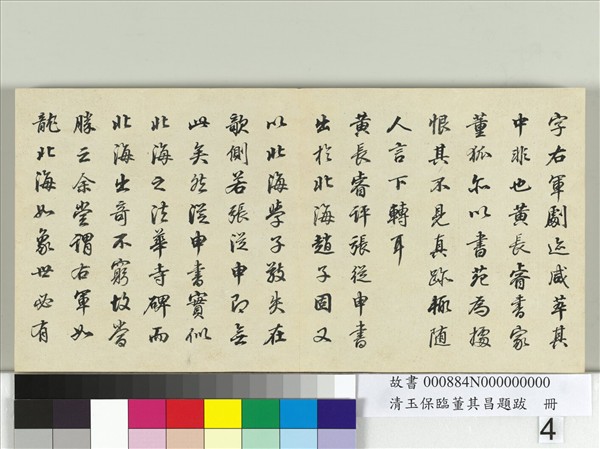 字右軍劇迹咸萃其
中非也黃長睿書家
董狐亦以書苑為據
恨其不見真跡輒随
人言下轉耳
黃長睿評張從申書
出於北海趙子固又
以北海學子敬失在
欹側若張從申即無
此矣然從申書實似
北海之法華寺碑而
北海出奇不窮故當
勝之余嘗謂右軍如
龍北海如象世必有
故書 000884N000000000
清玉保臨董其昌題跋 冊
4